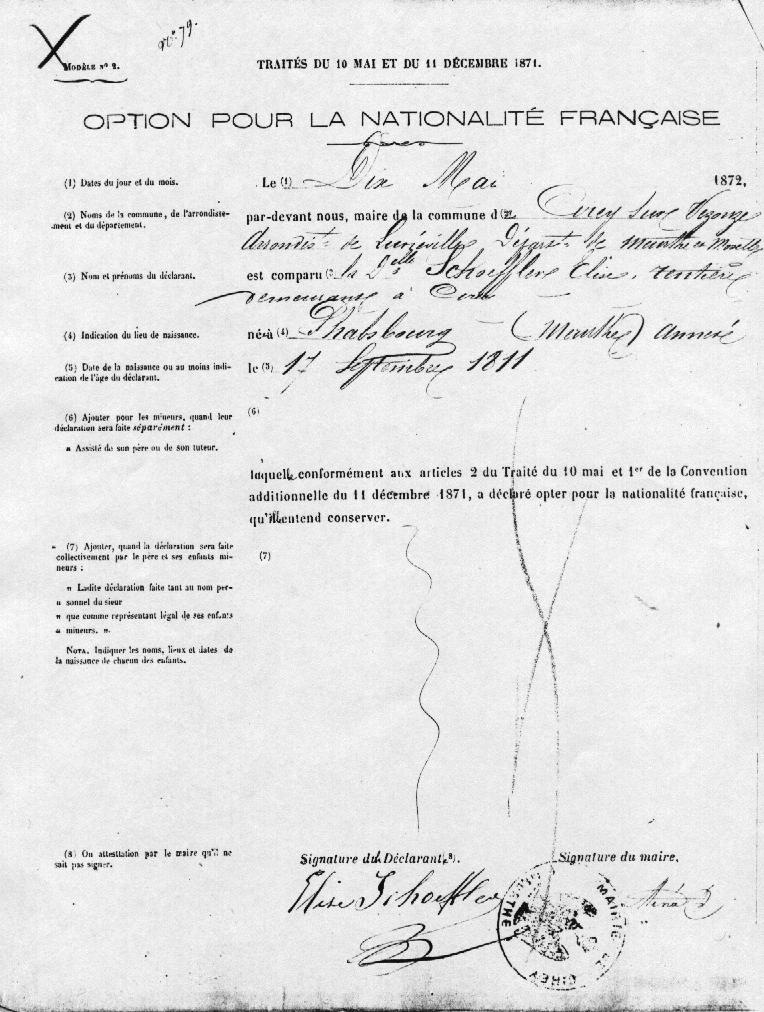 N° 79.
MODÈLE N° 2.
TRAITÉS DU 10 MAI ET DU 11 DÉCEMBRE 1871.
OPTION POUR LA NATIONALITÉ FRANÇAISE
(1) Dates du jour et du mois.
Le (1) Dix Mai 1872,
(2) Noms de la commune, de l'arrondisse-
ment et du département.
par-devant nous, maire de la commune de Cirey sur Vezouze
Arrondist de Lunéville Départt de Meurthe et Moselle
(3) Nom et prénoms du déclarant.
est comparu la Delle Schoeffler Elise, rentière
demeurant à Cirey
(4) Indication du lieu de naissance.
né à (4) Phalsbourg (Meurthe) annexé
(5) Date de la naissance ou au moins indi-
cation de l'âge du déclarant.
le (5) 17 Septembre 1811
(6) Ajouter pour les mineurs, quand leur
déclaration sera faite séparément :
« Assisté de son père ou de son tuteur.
(6)
laquelle conformément aux articles 2 du Traité du 10 mai et 1er de la Convention
additionnelle du 11 décembre 1871, a déclaré opter pour la nationalité française,
qu'il entend conserver.
(7) Ajouter, quand la déclaration sera faite
collectivement par le père et ses enfants mi-
neurs :
« Ladite déclaration faite tant au nom per-
« sonnel du sieur
« que comme représentant légal de ses enfants
« mineurs. ».
NOTA. Indiquer les noms, lieux et dates de
la naissance de chacun des enfants.
(7)
(8) Ou attestation par le maire qu'il ne
sait pas signer.
Signature du Déclarant (8).
Signature du maire.
Elise Schoeffler
MAIRIE DE CIREY
MEURTHE